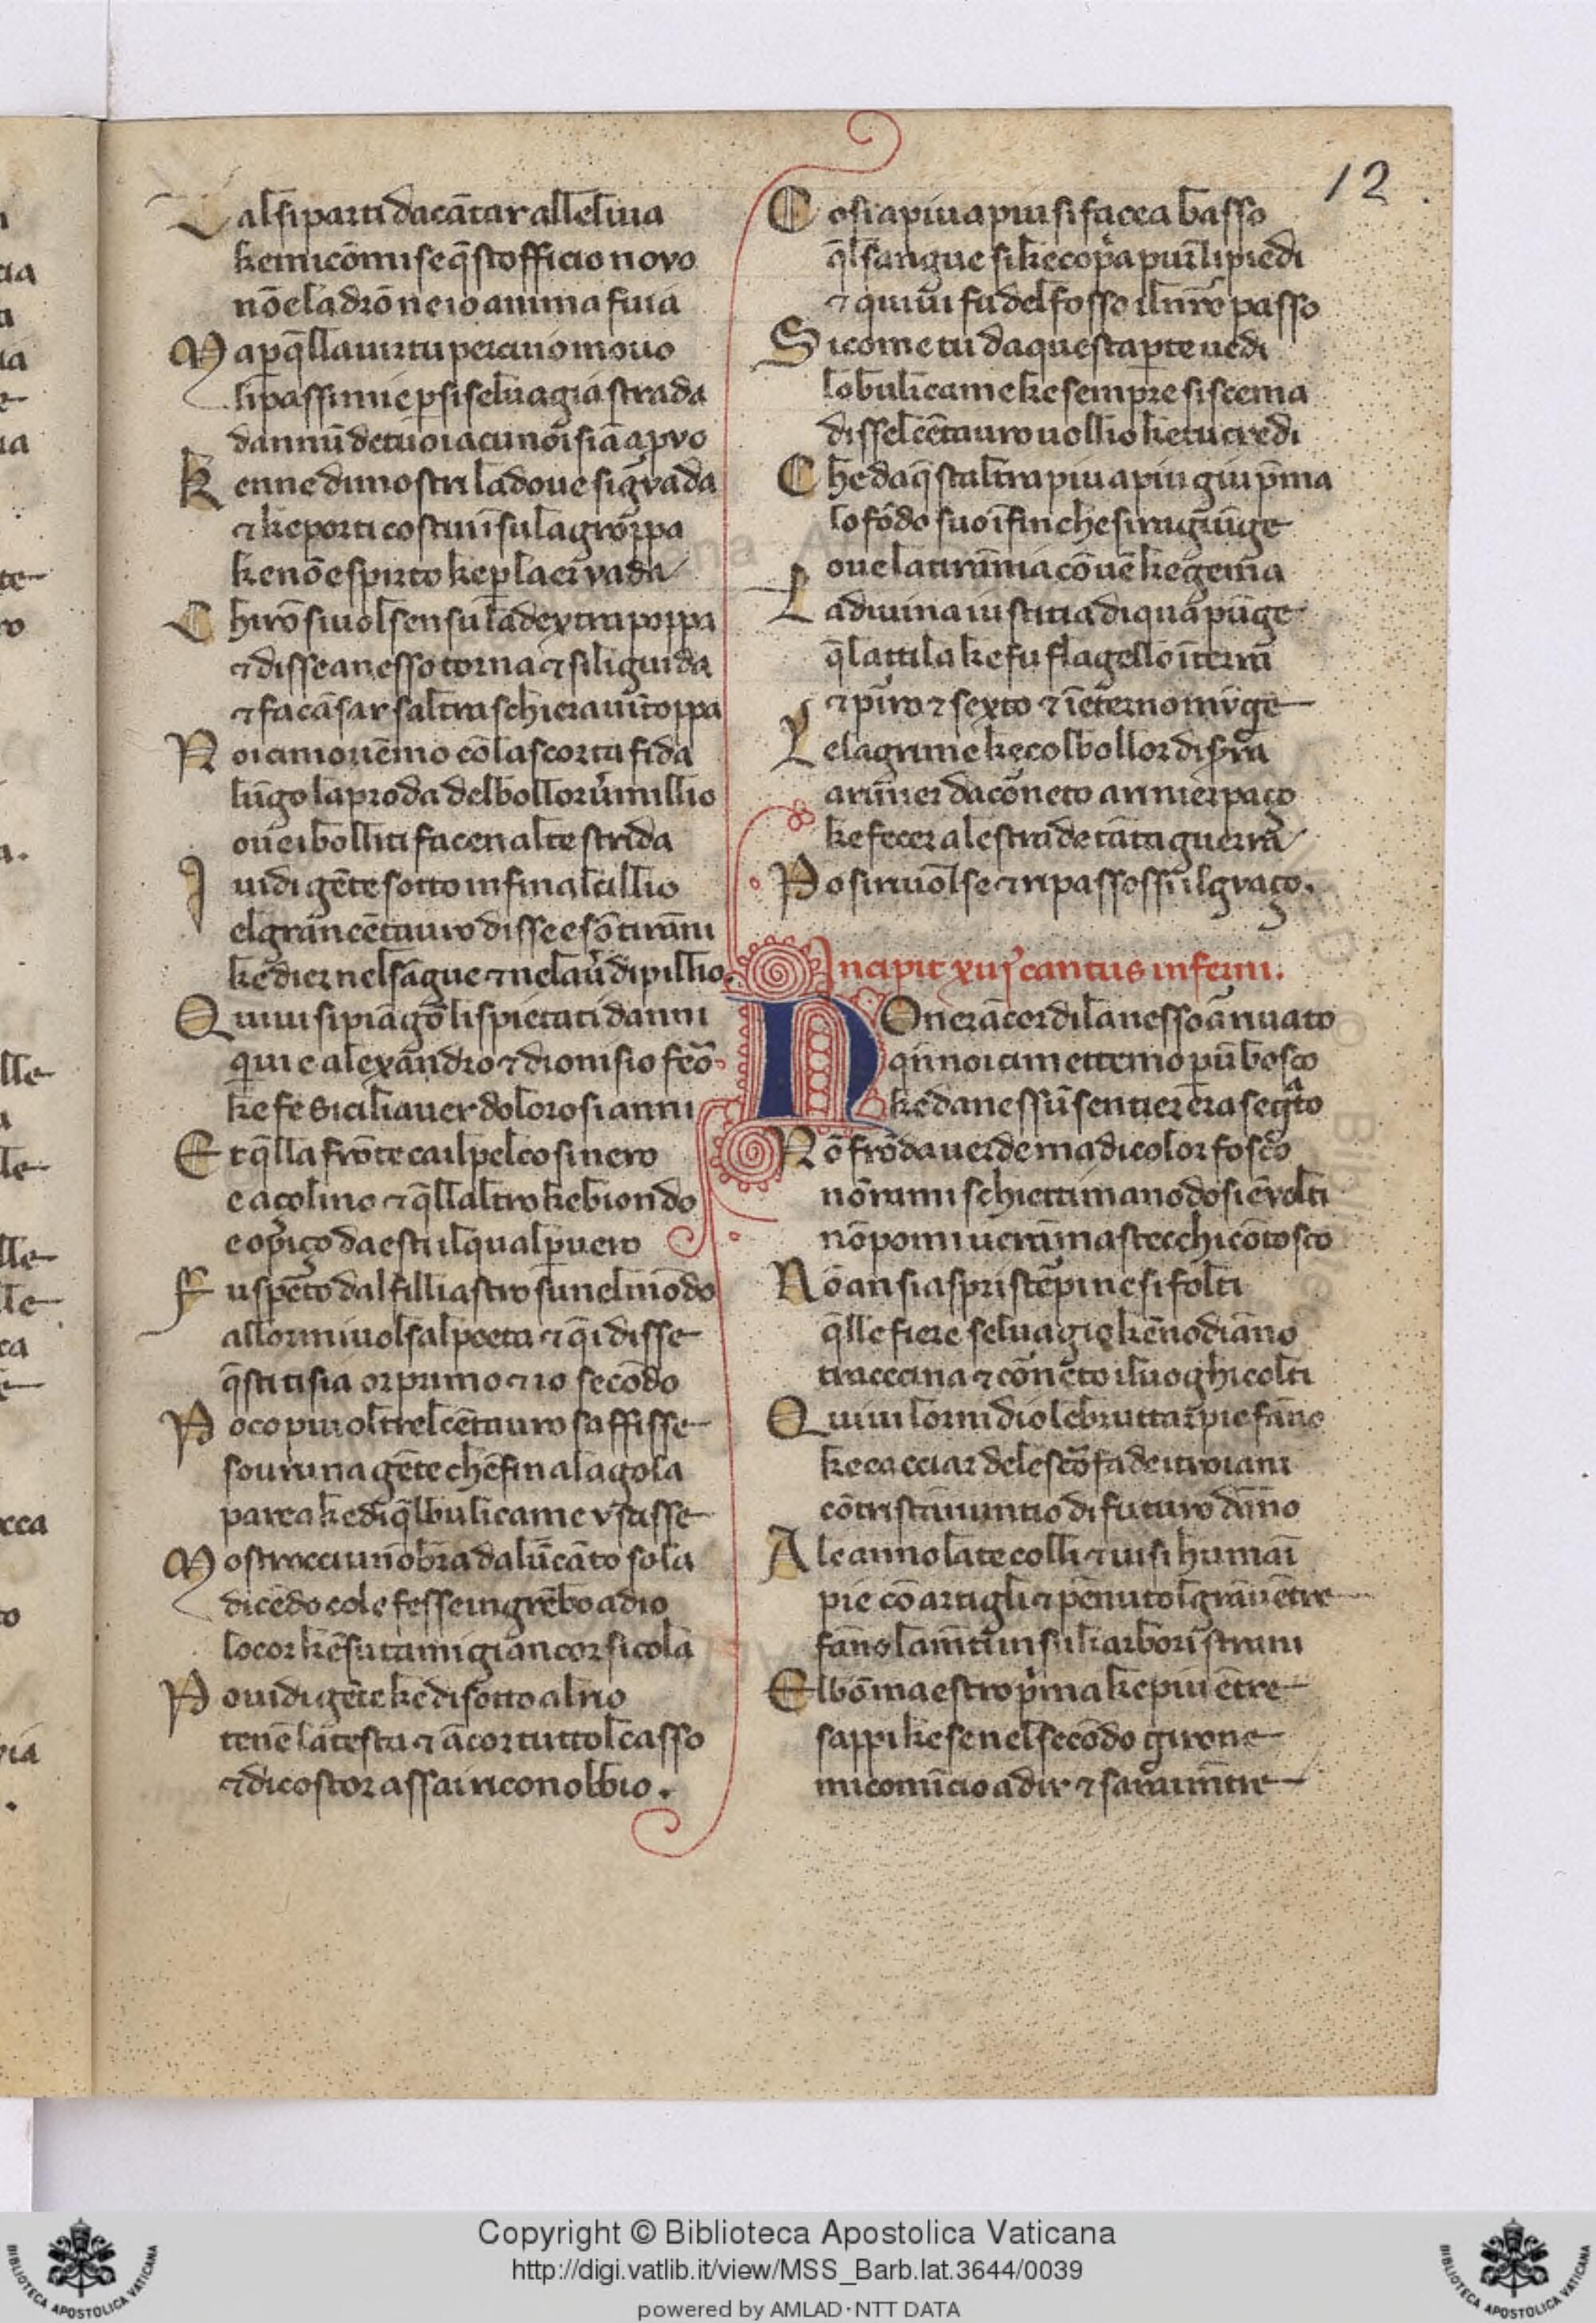 Tal si parti da cātar alleliuа
kemicōmise q̄stofficio novo
nō e ladrōn e io anima fuia
Ma p q̄lla uirtu per cui o mouo
li passi miei p si seluagia strada
dannū de tuoi a cu noi siā a pvo
Kenne dimostri la doue si gvada
⁊ ke porti costui ī su la groppa
ke nō e spirto ke p laer vada
Chirō si uolse n su la dextra poppa
⁊ disse a nesso torna ⁊ si li guida
⁊ fa cāsar saltra schiera uītoppa
Noi ci mouēmo cō la scorta fida
lūgo la proda del bollor ūmillio
oue i bolliti facen alte strida
I uidi gēte sotto infinal cillio
el gran cētauro disse e sō tirāni
ke dier nel sāgue ⁊ ne lau̓ di pillio
Quiui si piāgō li spietati danni
quiui e alexandro ⁊ dionisio feō
ke fe sicilia uer dolorosi anni
Et q̄lla frōte ca il pel cosi nero
e açolino ⁊ q̄ll altro ke biondo
e opiço da esti il qual p uero
Fu spēto dal filliastro su nel mōdo
allor mi uolsi al poeta ⁊ q̄i disse
q̄sti ti sia or primo ⁊ io secōdo
Poco piu oltrel cētauro saffisse
sour una gēte che fin a la gola
parea ke di q̄l bulicame vscisse
Mostrocci un obra da lū cāto sola
dicēdo cole fesse in grēbo a dio
lo cor ke su tamigi ancor si cola
Po uidi gēte ke di sotto al rio
tenē la testa ⁊ ācor tutto l casso
⁊ di costor assai riconobbio.
Cosi a piu a piu si facea basso
q̄l sangue si ke copa pur li piedi
⁊ quiui fu del fosso il nr̄o passo
Si come tu da questa pte uedi
lo bulicame ke sempre si scema
disse l cētauro uollio ke tu credi
Che da q̄staltra piu a piu giu pma
lo fōdo suo īfin che si ragiūge
oue la tirānia cōuē ke gema
La diuina iustitia di qua pūge
q̄l attila ke fu flagello ī terra
⁊ pirro ⁊ sexto ⁊ ī eterno mvge
Le lagrime ke col bollor disr̄ra
a rinier da corneto a rinier paço
ke fecer a le strade tāta guerra
Po si riuolse ⁊ ripassossi il gvaço.
Incipit xiij cantus inferni.
NOn era ācor di la nesso ar̄riuato
qn̄ noi ci mettemo p un bosco
ke da nessū sentier era segn̄to
Nō frōda uerde ma di color fosco
nō rami schietti ma nodosi e ̄volti
nō pomi ueran̄ ma stecchi cō tosco
Nō an si aspri sterpi ne si folti
q̄lle fiere seluagie kē n odiāno
tra cecina ⁊ cōneto i luoghi colti
Quiui lor nidi o le brutte arpie fāno
ke cacciar de le strofade i troiani
cō tristo annuntio di futuro dāno
Ale anno late colli ⁊ uisi humai
pie cō artigli ⁊ pēnuto l gran uētre
fāno lamēti in su li arbori strani
E l bō maestro p̄ma ke piu ētre
sappi ke se nel secōdo girone
mi comīcio a dir ⁊ sarai mētre
12
Copyright © Biblioteca Apostolica Vaticana
http://digi.vatlib.it/view/MSS_Barb.lat.3644/0039
powered by AMLAD·NTT DATA